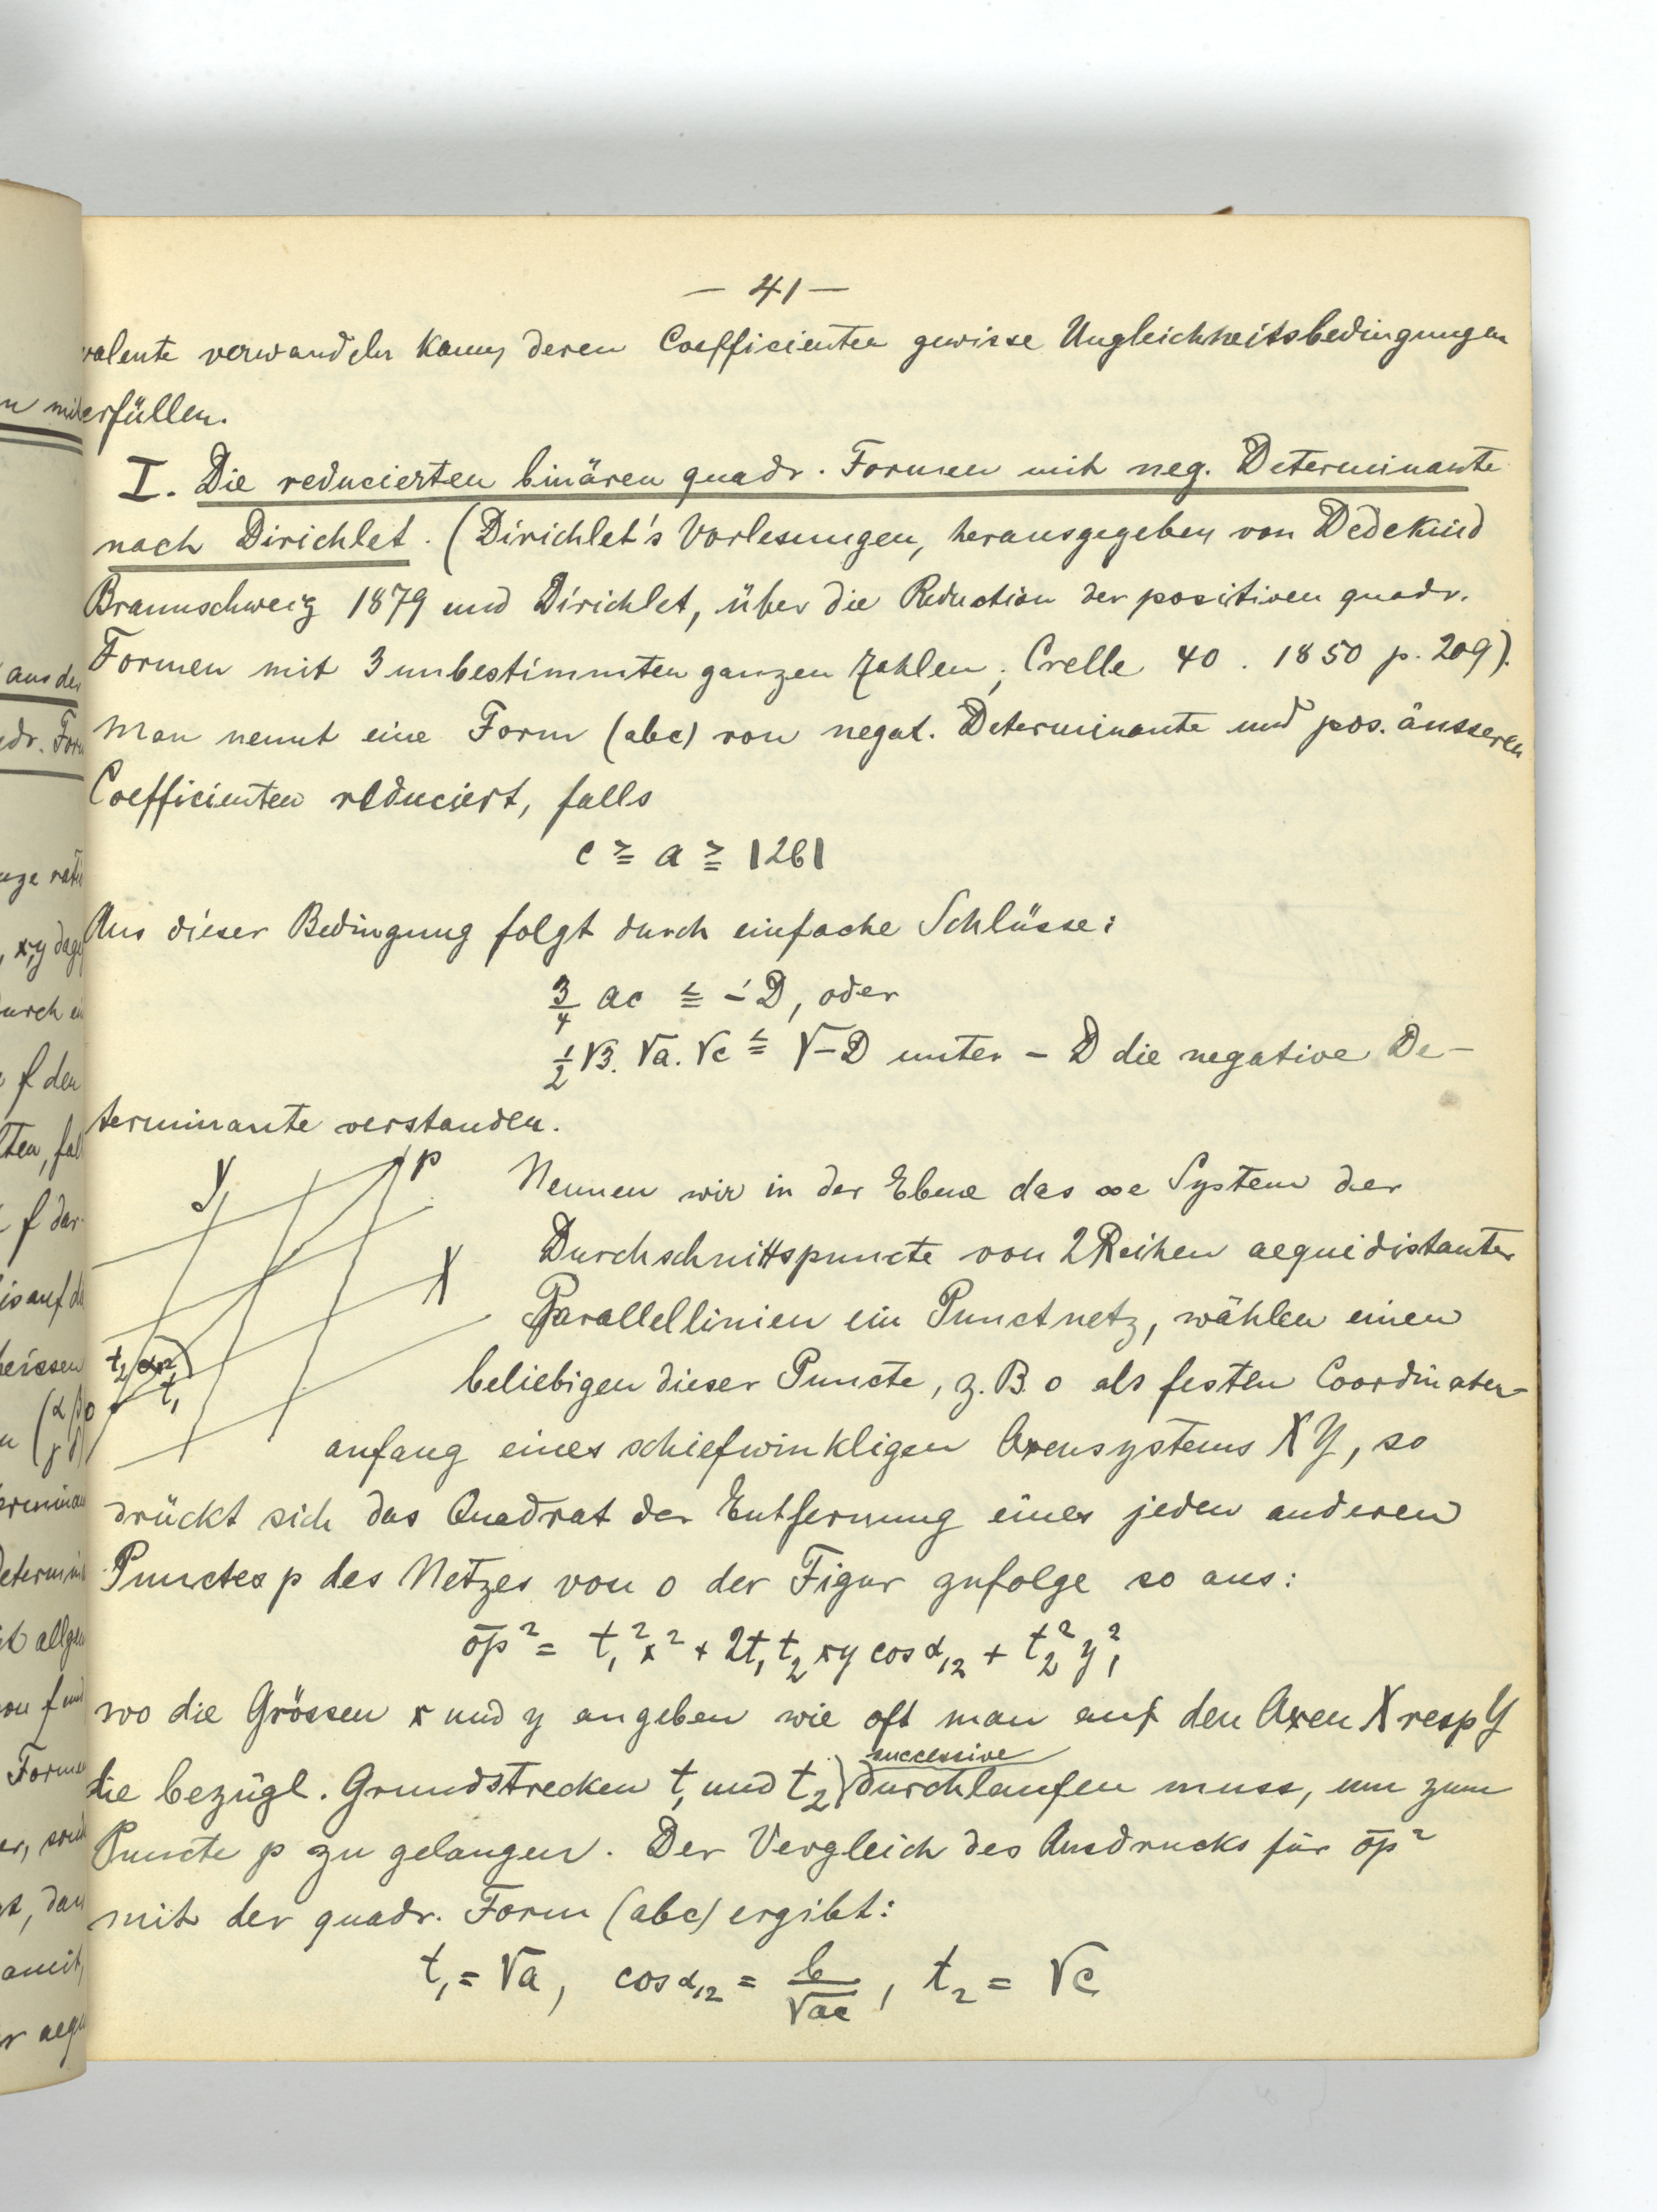 — 41 —
valente verwandeln kann, deren Coefficienten gewisse Ungleichheitsbedingungen
erfüllen.
I. Die reducierten binären quadr. Formen mit neg. Determinante
nach Dirichlet. (Dirichlet's Vorlesungen, herausgegeben von Dedekind
Braunschweig 1879 und Dirichlet, über die Reduction der positiven quadr.
Formen mit 3 unbestimmten ganzen Zahlen; Crelle 40. 1850 p. 209).
Man nennt eine Form (abc) von negat. Determinante und pos. äusseren
Coefficienten reduciert, falls
c ≧ a ≧ |2b|
Aus dieser Bedingung folgt durch einfache Schlüsse:
3/4 ac ≦ -D, oder
1/2 √3. √a. √c ≦ √-D unter - D die negative De-
terminante verstanden.
Y p
X
t2 α12
t1
o
Nennen wir in der Ebene das ∞e System der
Durchschnittspuncte von 2 Reihen aequidistanter
Parallellinien ein Punctnetz, wählen einen
beliebigen dieser Puncte, z. B. o als festen Coordinaten-
anfang eines schiefwinkligen Axensystems XY, so
drückt sich das Quadrat der Entfernung eines jeden anderen
Punctes p des Netzes von o der Figur zufolge so aus:
o̅p̅² = t₁²x² + 2t₁t₂xy cos α₁₂ + t₂²y²,
wo die Grössen x und y angeben wie oft man auf den Axen X resp Y
successive
die bezügl. Grundstrecken t₁ und t₂ durchlaufen muss, um zum
Puncte p zu gelangen. Der Vergleich des Ausdrucks für o̅p̅²
mit der quadr. Form (abc) ergibt:
t₁ = √a, cos α₁₂ = b/√ac, t₂ = √c